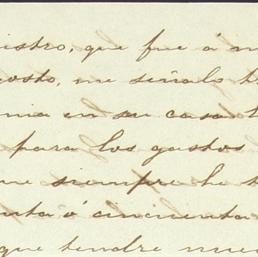 istro, que fue á m
osto, me señaló t
nia en su casa t
para los gastos
ue siempre he t
nta ó cincuenta
que tendré nue